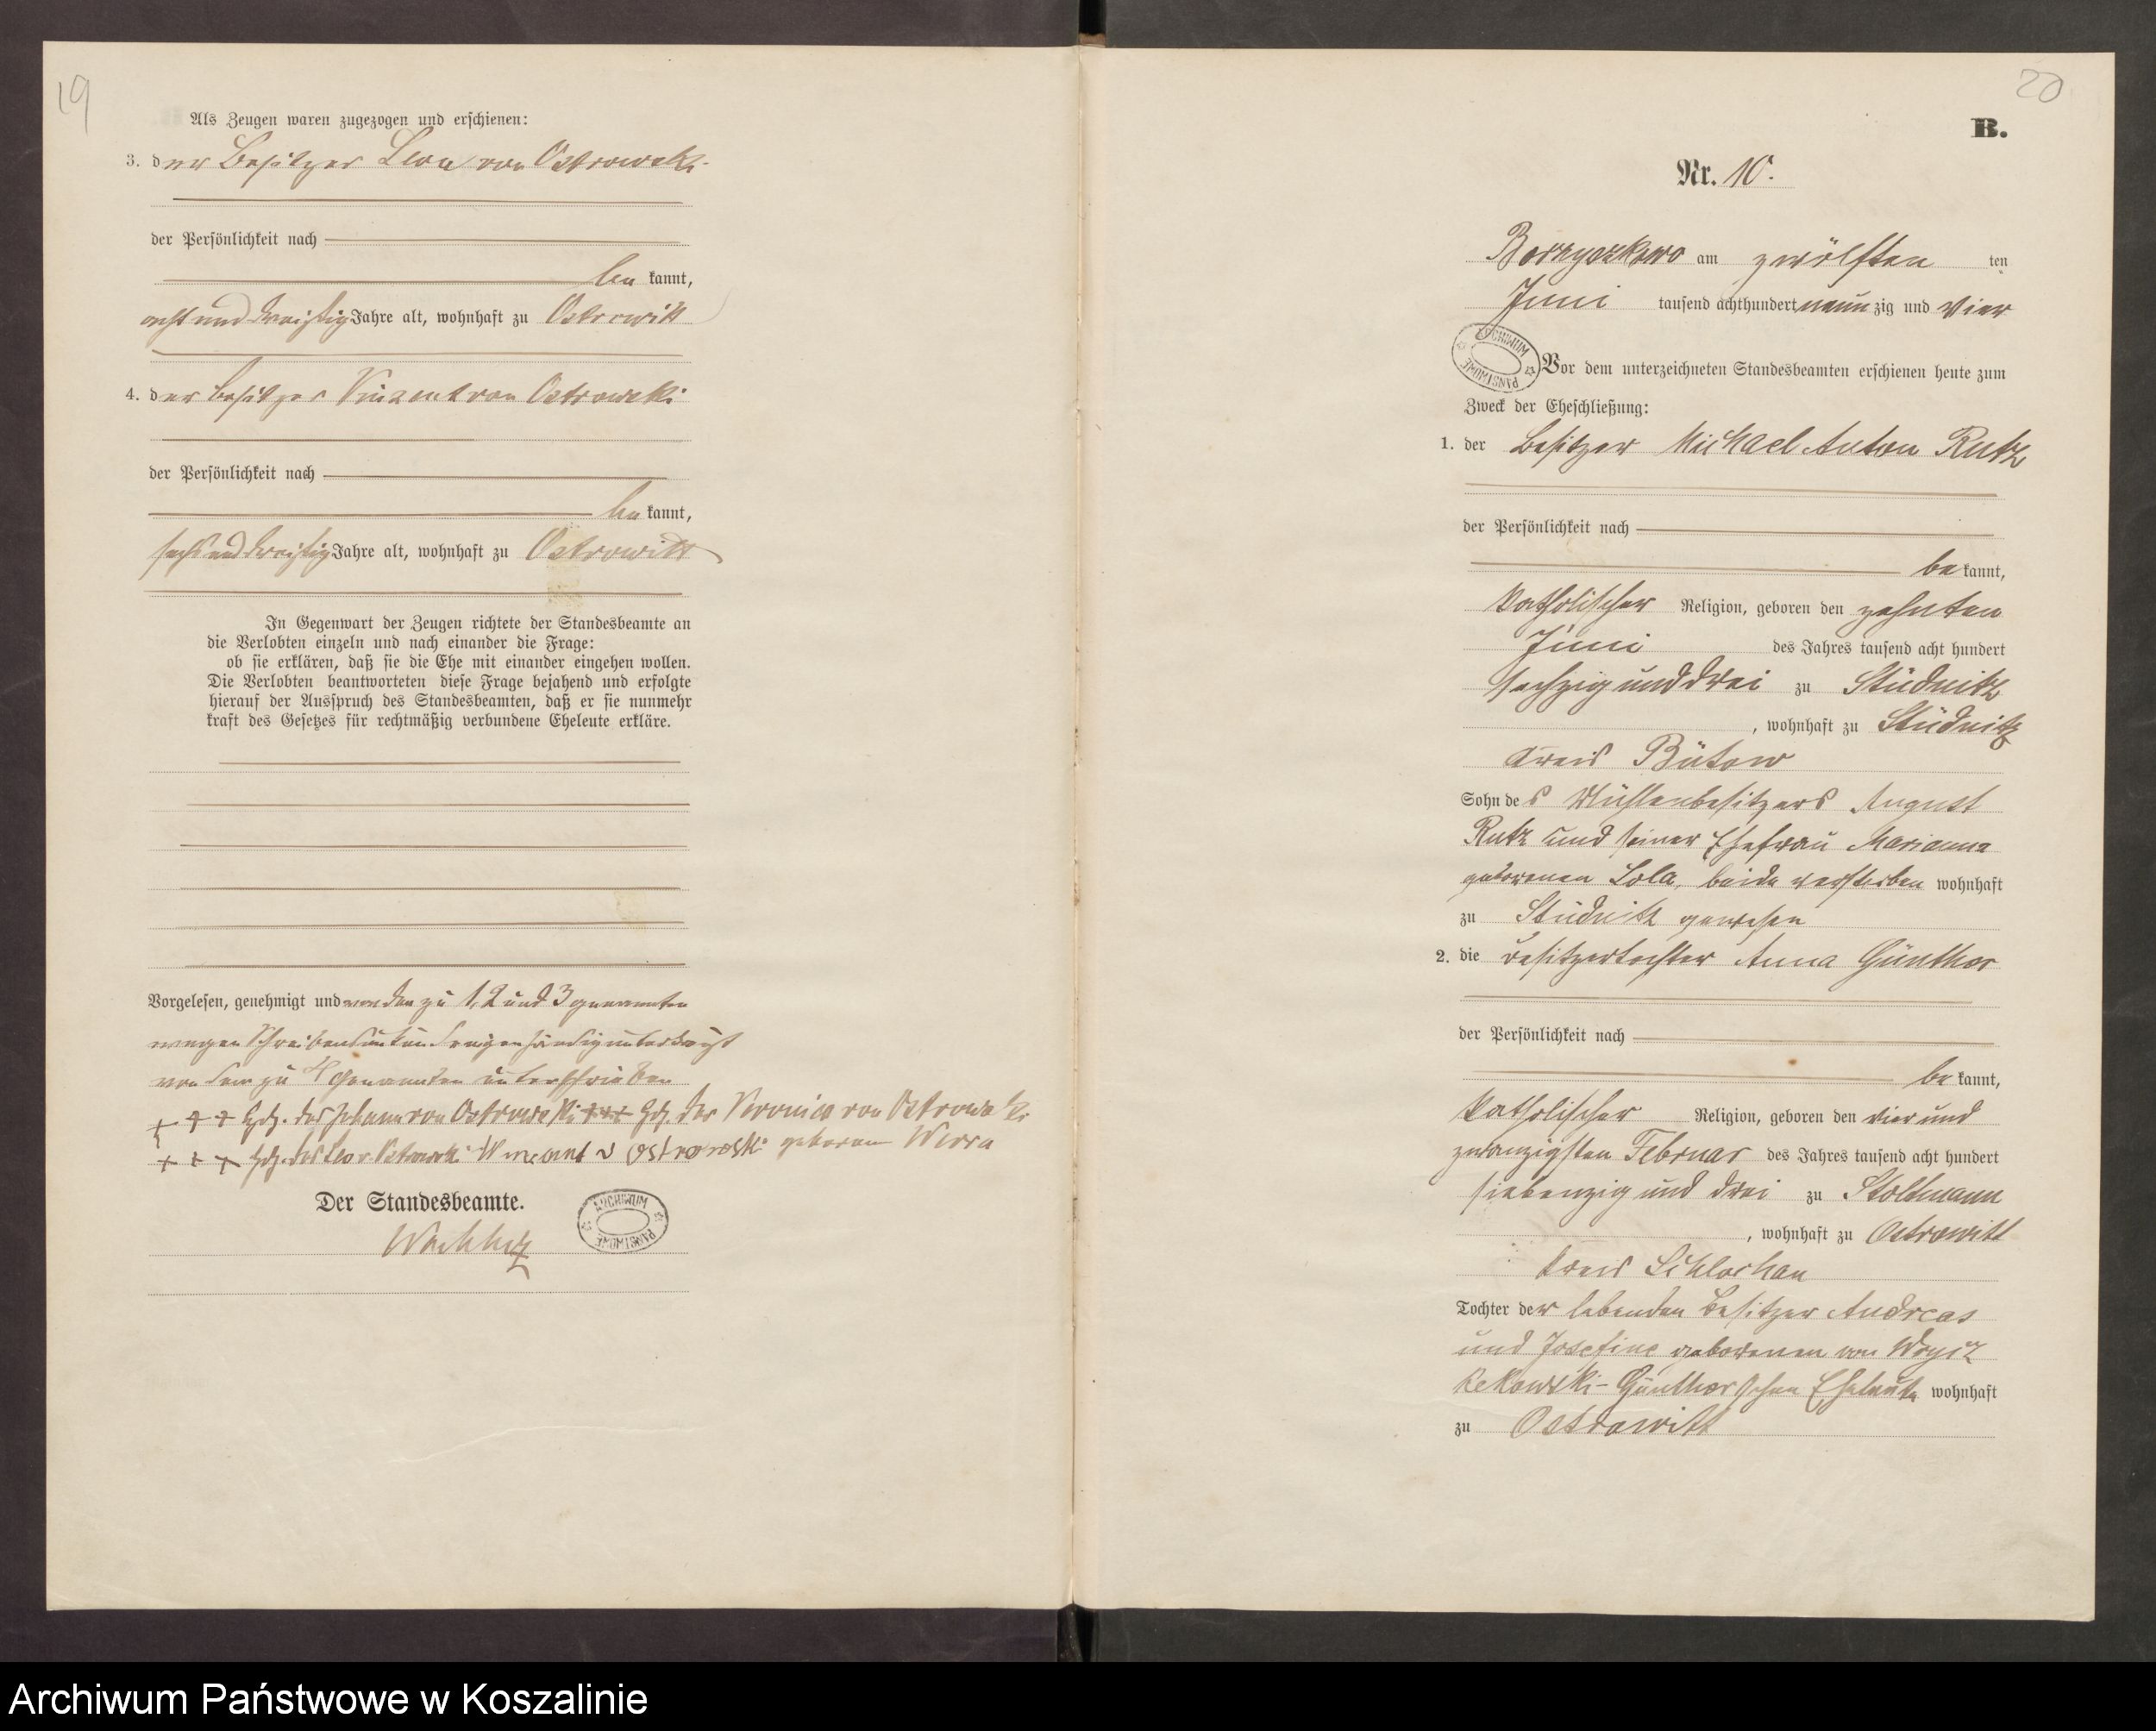 19
Als Zeugen waren zugezogen und erschienen:
3. der Besitzer Leon von Ostrowski
der Persönlichkeit nach
bekannt,
acht und dreißig Jahre alt, wohnhaft zu Ostrowitt
4. der Besitzer Vinzent von Ostrowski
der Persönlichkeit nach
bekannt,
sechs und dreißig Jahre alt, wohnhaft zu Ostrowitt
In Gegenwart der Zeugen richtete der Standesbeamte an
die Verlobten einzeln und nach einander die Frage:
ob sie erklären, daß sie die Ehe mit einander eingehen wollen.
Die Verlobten beantworteten diese Frage bejahend und erfolgte
hierauf der Ausspruch des Standesbeamten, daß er sie nunmehr
kraft des Gesetzes für rechtmäßig verbundene Eheleute erkläre.
Vorgelesen, genehmigt und von den zu 1, 2 und 3 genannten
wegen Schreibensunkunde eigenhändig unterkreuzt
von dem zu 4 genannten unterschrieben
+ + + Hdz. des Johann von Ostrowski + + + Hdz. der Veronica von Ostrowski
+ + + Hdz. des Leo v. Ostrowski Wincent v Ostrowski geborene Werra
Der Standesbeamte.
ARCHIWUM PAŃSTWOWE
20
B.
Nr. 10.
Bornyczkowo am zwölften ten
Juni tausend achthundert neunzig und vier
ARCHIWUM PAŃSTWOWE
Vor dem unterzeichneten Standesbeamten erschienen heute zum
Zweck der Eheschließung:
1. der Besitzer Michael Anton Rutz
der Persönlichkeit nach
bekannt,
katholischer Religion, geboren den zehnten
Juni des Jahres tausend acht hundert
sechzig und drei zu Studnitz
, wohnhaft zu Studnitz
Kreis Bütow
Sohn des Mühlenbesitzers August
Rutz und seiner Ehefrau Marianna
geborenen Lola, beide verstorben wohnhaft
zu Studnitz gewesen
2. die Besitzertochter Anna Günther
der Persönlichkeit nach
bekannt,
katholischer Religion, geboren den vier und
zwanzigsten Februar des Jahres tausend acht hundert
siebenzig und drei zu Stoltmann
, wohnhaft zu Ostrowitt
Kreis Schlochau
Tochter der lebenden Besitzer Andreas
und Josefine geborenen von
Günther'schen Eheleute wohnhaft
zu Ostrowitt
Archiwum Państwowe w Koszalinie